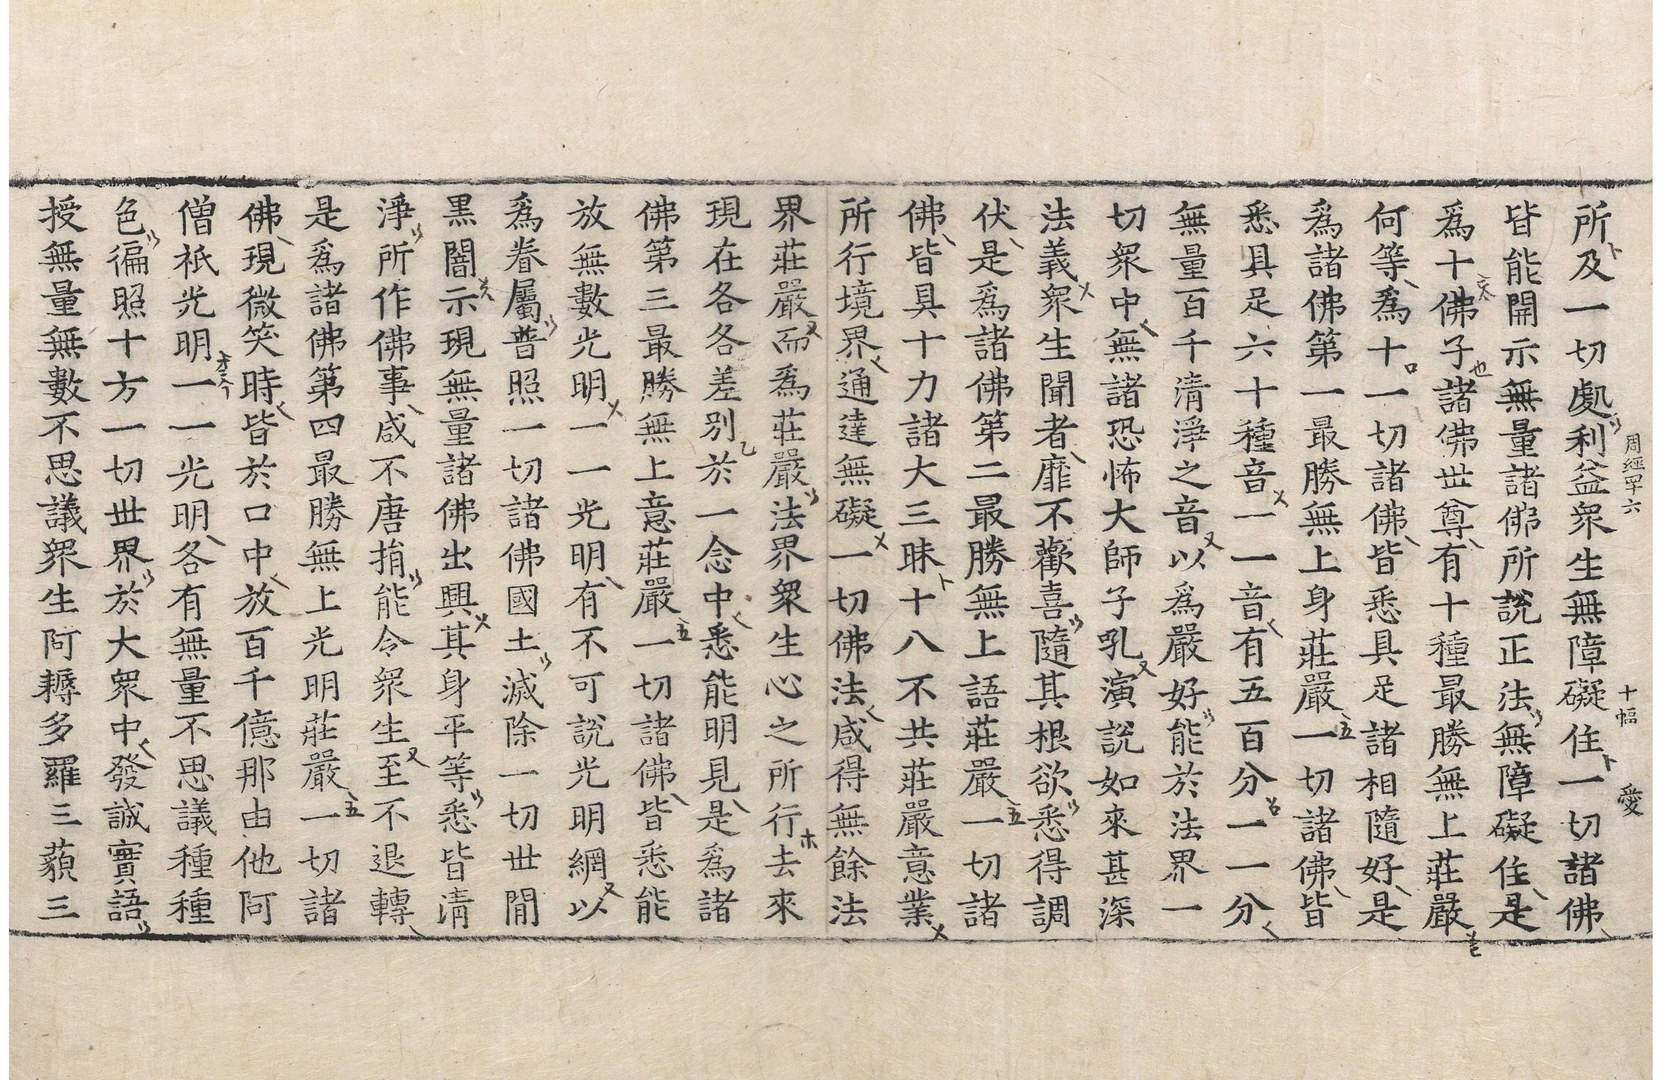 所及一切處利益衆生無障礙住一切諸佛
周經四十六
十幅
愛
皆能開示無量諸佛所說正法無障礙住是
爲十佛子諸佛世尊有十種最勝無上莊嚴
何等爲十一切諸佛皆悉具足諸相隨好是
爲諸佛第一最勝無上身莊嚴一切諸佛皆
悉具足六十種音一一音有五百分一一分
無量百千清淨之音以爲嚴好能於法界一
切衆中無諸恐怖大師子吼演說如來甚深
法義衆生聞者靡不歡喜隨其根欲悉得調
伏是爲諸佛第二最勝無上語莊嚴一切諸
佛皆具十力諸大三昧十八不共莊嚴意業
所行境界通達無礙一切佛法咸得無餘法
界莊嚴而爲莊嚴法界衆生心之所行去來
現在各各差別於一念中悉能明見是爲諸
佛第三最勝無上意莊嚴一切諸佛皆悉能
放無數光明一一光明有不可說光明網以
爲眷屬普照一切諸佛國土滅除一切世間
黑闇示現無量諸佛出興其身平等悉皆清
淨所作佛事咸不唐捐能令衆生至不退轉
是爲諸佛第四最勝無上光明莊嚴一切諸
佛現微笑時皆於口中放百千億那由他阿
僧祇光明一一光明各有無量不思議種種
色徧照十方一切世界於大衆中發誠實語
授無量無數不思議衆生阿耨多羅三藐三